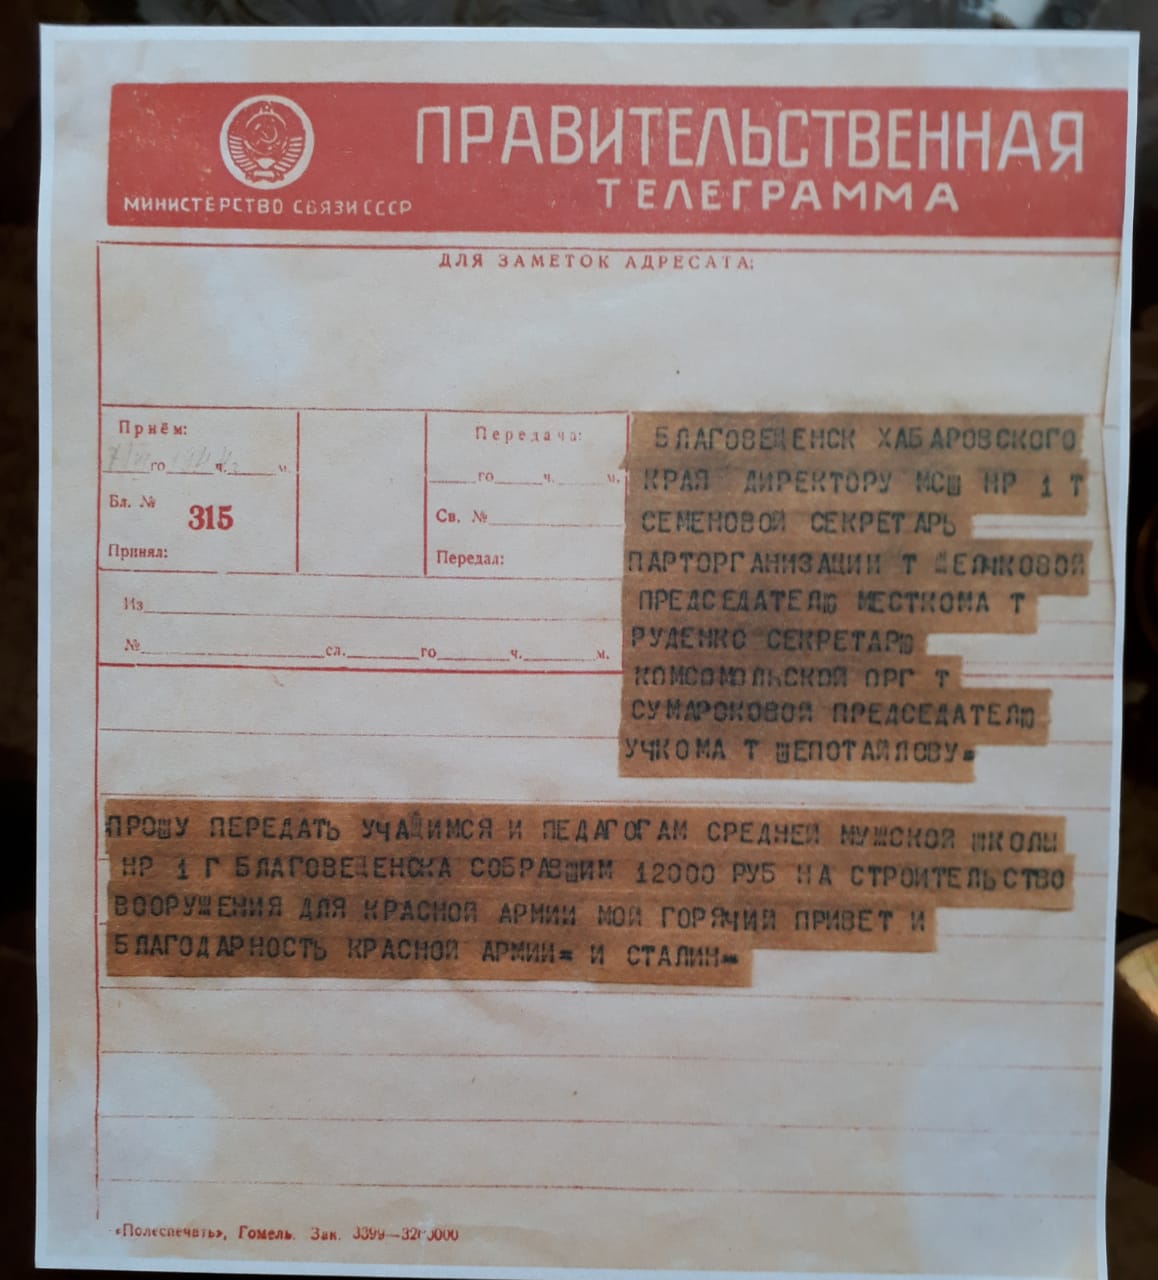 ПРАВИТЕЛЬСТВЕННАЯ
ТЕЛЕГРАММА
МИНИСТЕРСТВО СВЯЗИ СССР
ДЛЯ ЗАМЕТОК АДРЕСАТА:
Приём:
го ч. м.
Бл. № 315
Принял:
Передача:
го ч. м.
Св. №
Передал:
Из
№ сл. го ч. м.
БЛАГОВЕЩЕНСК ХАБАРОВСКОГО
КРАЯ ДИРЕКТОРУ МСШ НР 1 Т
СЕМЕНОВОЙ СЕКРЕТАРЬ
ПАРТОРГАНИЗАЦИИ Т
ПРЕДСЕДАТЕЛЮ МЕСТКОМА Т
РУДЕНКО СЕКРЕТАРЮ
КОМСОМОЛЬСКОЙ ОРГ Т
СУМАРОКОВОЙ ПРЕДСЕДАТЕЛЮ
УЧКОМА Т ШЕПОТАЙЛОВУ=
ПРОШУ ПЕРЕДАТЬ УЧАЩИМСЯ И ПЕДАГОГАМ СРЕДНЕЙ МУЖСКОЙ ШКОЛЫ
НР 1 Г БЛАГОВЕЩЕНСКА СОБРАВШИМ 12000 РУБ НА СТРОИТЕЛЬСТВО
ВООРУЖЕНИЯ ДЛЯ КРАСНОЙ АРМИИ МОЙ ГОРЯЧИЙ ПРИВЕТ И
БЛАГОДАРНОСТЬ КРАСНОЙ АРМИИ= И СТАЛИН=
«Полеспечать», Гомель. Зак. 3399—